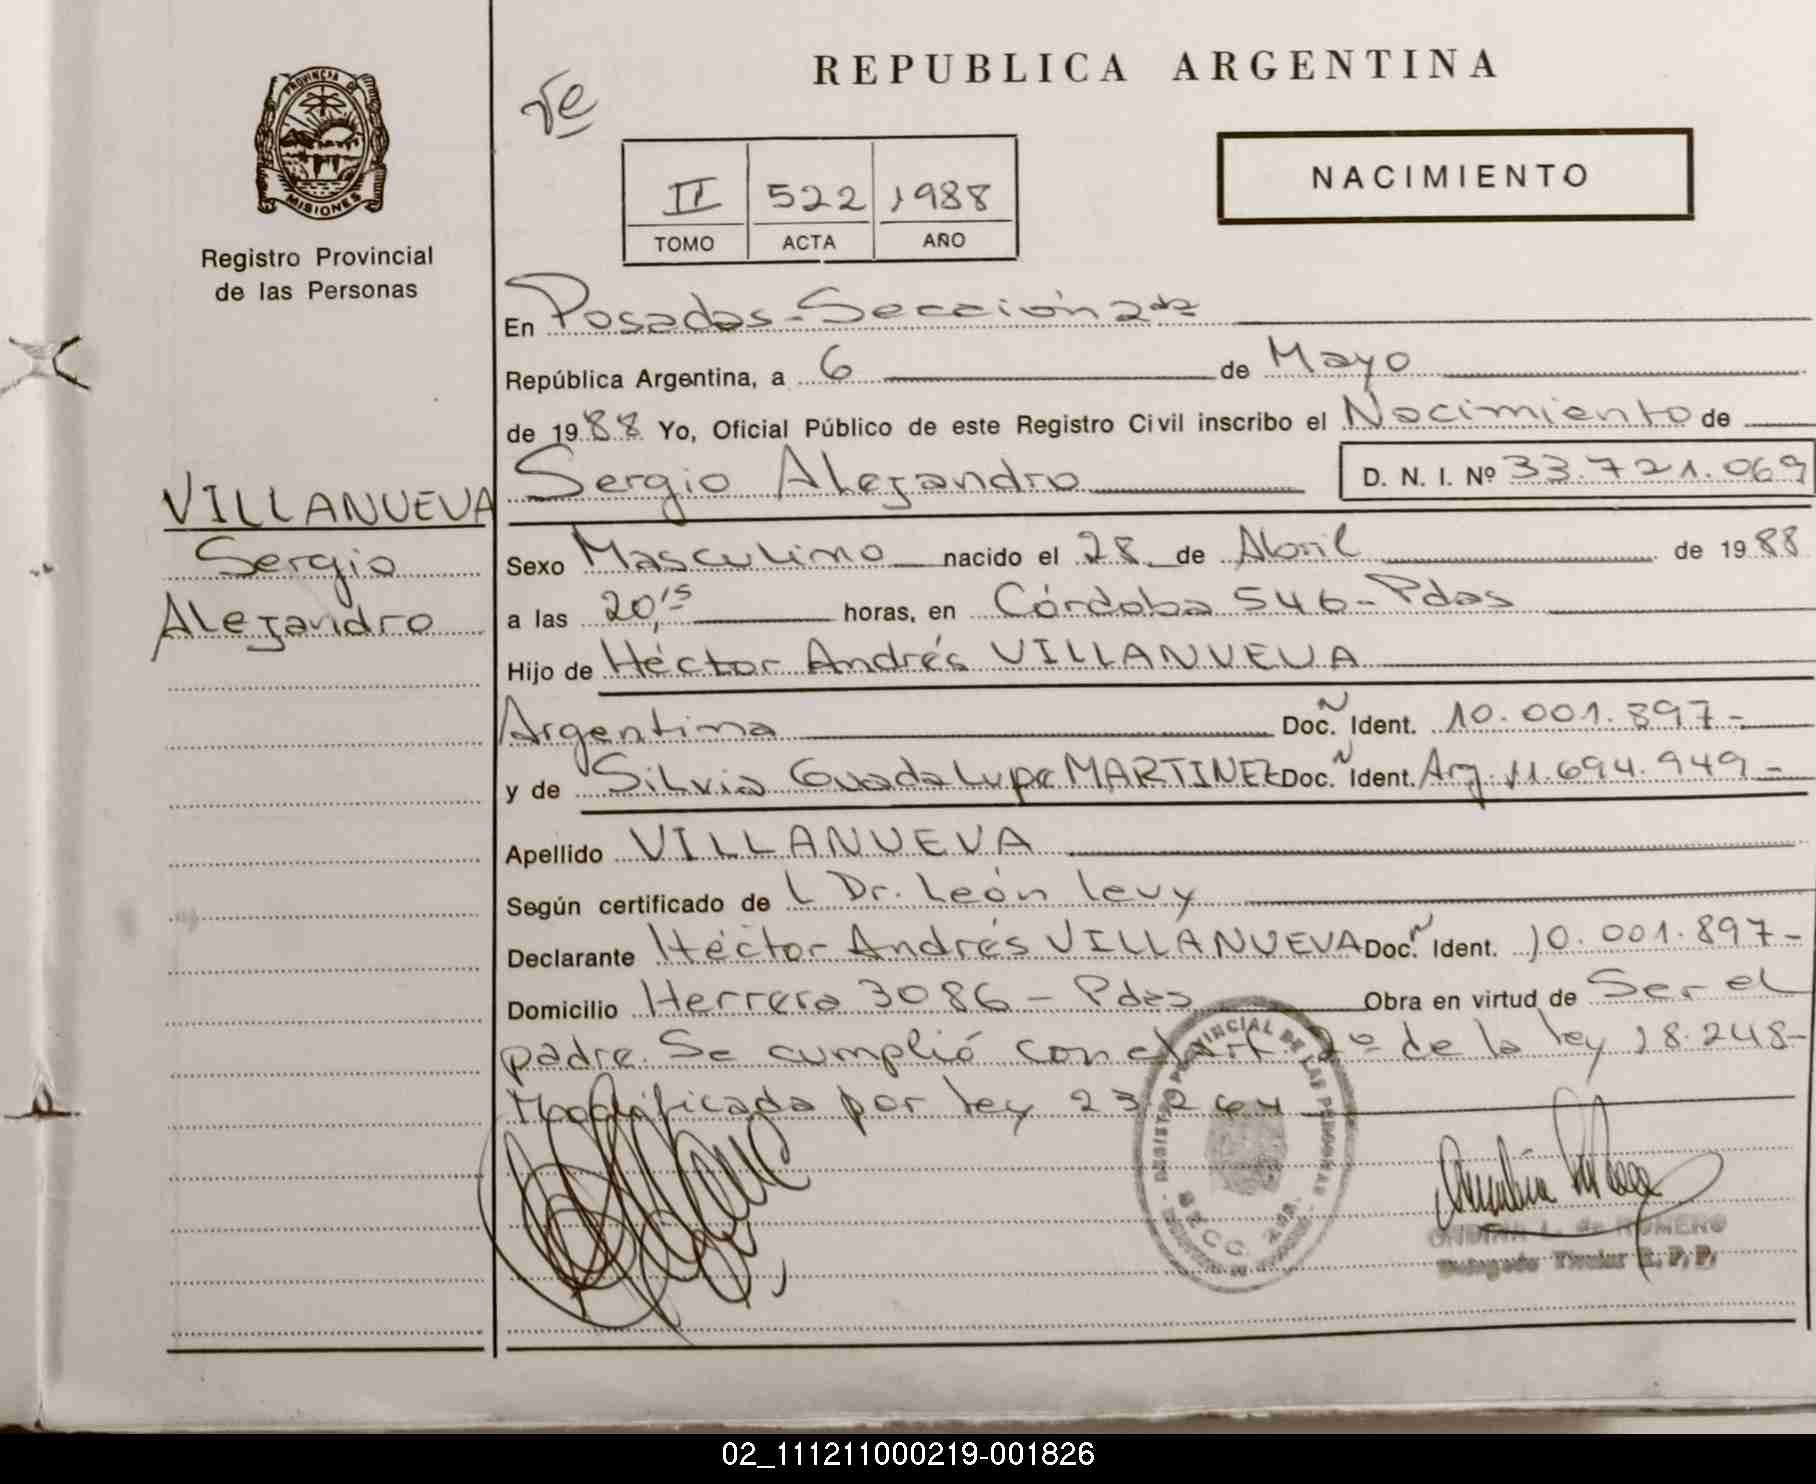 REPUBLICA ARGENTINA
PROVINCIA DE
MISIONES
Registro Provincial
de las Personas
II 522 1988
TOMO ACTA AÑO
NACIMIENTO
En Posadas-Sección 2da
República Argentina, a 6 de Mayo
de 1988 Yo, Oficial Público de este Registro Civil inscribo el Nacimiento de
Sergio Alejandro D. N. I. Nº 33.721.069
VILLANUEVA
Sergio
Alejandro
Sexo Masculino nacido el 28 de Abril de 1988
a las 20,15 horas, en Córdoba 546-Pdas
Hijo de Héctor Andrés VILLANUEVA
Argentina Doc. Ident. 10.001.897-
y de Silvia Guadalupe MARTINEZ Doc. Ident. Arg. 11.694.949-
Apellido VILLANUEVA
Según certificado de L Dr. León Levy
Declarante Héctor Andrés VILLANUEVA Doc. Ident. 10.001.897-
Domicilio Herrera 3086 - Pdas Obra en virtud de Ser el
padre. Se cumplió con el art. 2º de la ley 18.248-
Modificada por ley 23.264
PROVINCIAL DE LAS PERSONAS
SECC. 2da.
L. de ROMERO
Delegado Titular R.P.P.
02_111211000219-001826